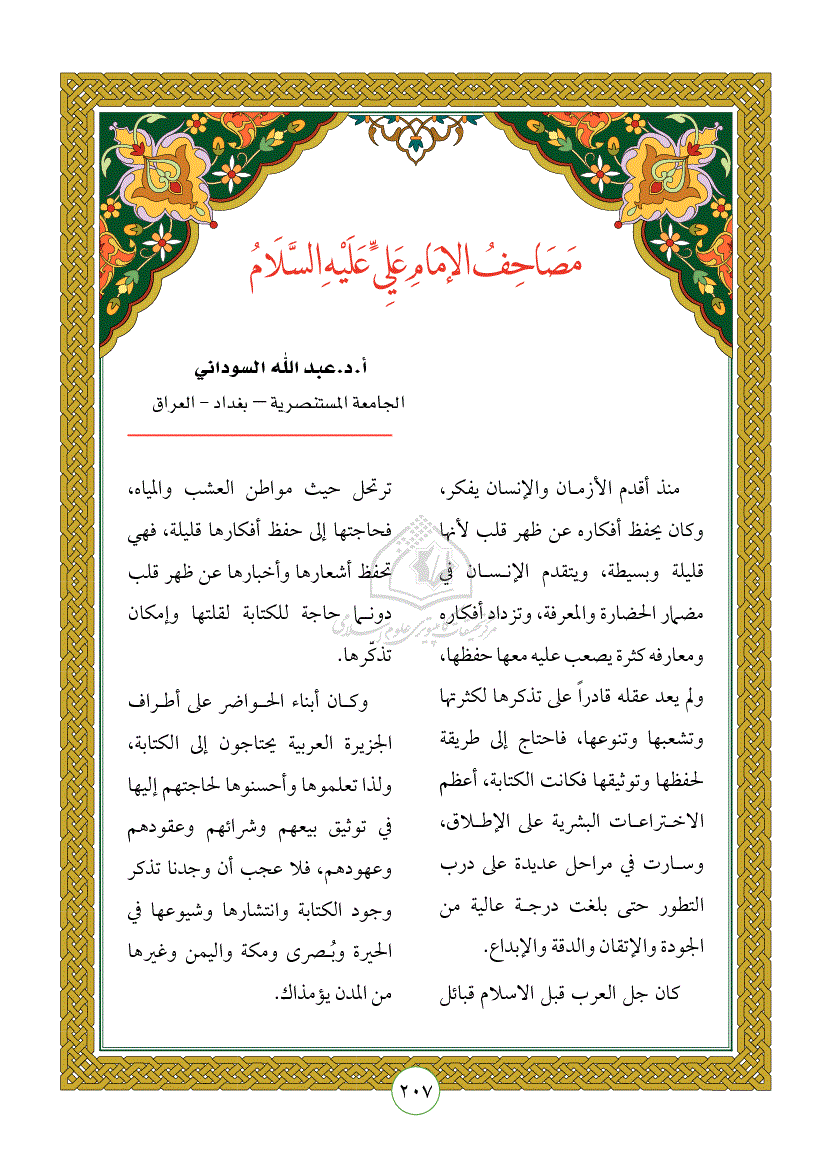 مَصَاحِفُ الإمَامِ عَلِيٍّ عَلَيْهِ السَّلَامُ
أ.د.عبد الله السوداني
الجامعة المستنصرية – بغداد – العراق
منذ أقدم الأزمـان والإنسان يفكر،
وكان يحفظ أفكاره عن ظهر قلب لأنها
قليلة وبسيطة، ويتقدم الإنـسـان في
مضمار الحضارة والمعرفة، وتزداد أفكاره
ومعارفه كثرة يصعب عليه معها حفظها،
ولم يعد عقله قادراً على تذكرها لكثرتها
وتشعبها وتنوعها، فاحتاج إلى طريقة
لحفظها وتوثيقها فكانت الكتابة، أعظم
الاخـتراعـات البشرية على الإطـلاق،
وسـارت في مراحل عديدة على درب
التطور حتى بلغت درجـة عالية من
الجودة والإتقان والدقة والإبداع.
كان جل العرب قبل الاسلام قبائل
ترتحل حيث مواطن العشب والمياه،
فحاجتها إلى حفظ أفكارها قليلة، فهي
تحفظ أشعارها وأخبارها عن ظهر قلب
دونـما حاجة للكتابة لقلتها وإمكان
تذكّرها.
وكـان أبناء الحـواضر على أطـراف
الجزيرة العربية يحتاجون إلى الكتابة،
ولذا تعلموها وأحسنوها لحاجتهم إليها
في توثيق بيعهم وشرائهم وعقودهم
وعهودهم، فلا عجب أن وجدنا تذكر
وجود الكتابة وانتشارها وشيوعها في
الحيرة وبُصرى ومكة واليمن وغيرها
من المدن يؤمذاك.
مرکز تحقیقات کامپیوتری علوم اسلامی
٢٠٧